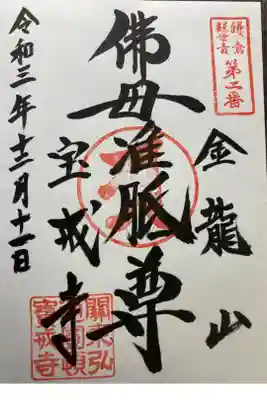 鎌倉
観世音
第二番
金龍山
佛母准胝尊
宝戒寺
令和三年十二月十一日
關東弘
圓頓
寶戒寺